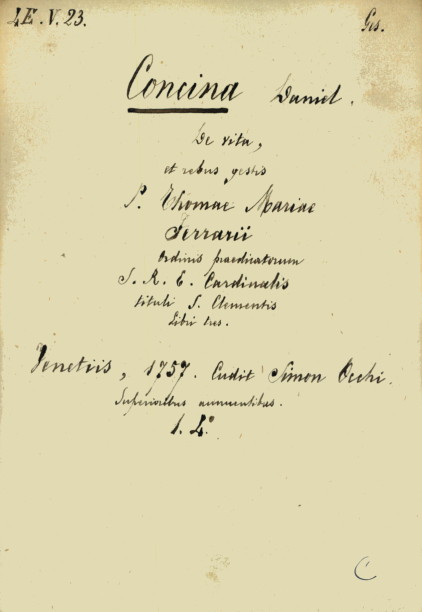 LE.V.23.
Ges.
Concina Daniel.
De vita,
et rebus gestis
P. Thomae Mariae
Ferrarii
Ordinis praedicatorum
S. R. E. Cardinalis
tituli S. Clementis
Libri tres.
Venetiis, 1757. Cudit Simon Occhi.
Superioribus annuentibus.
1. 4°
C